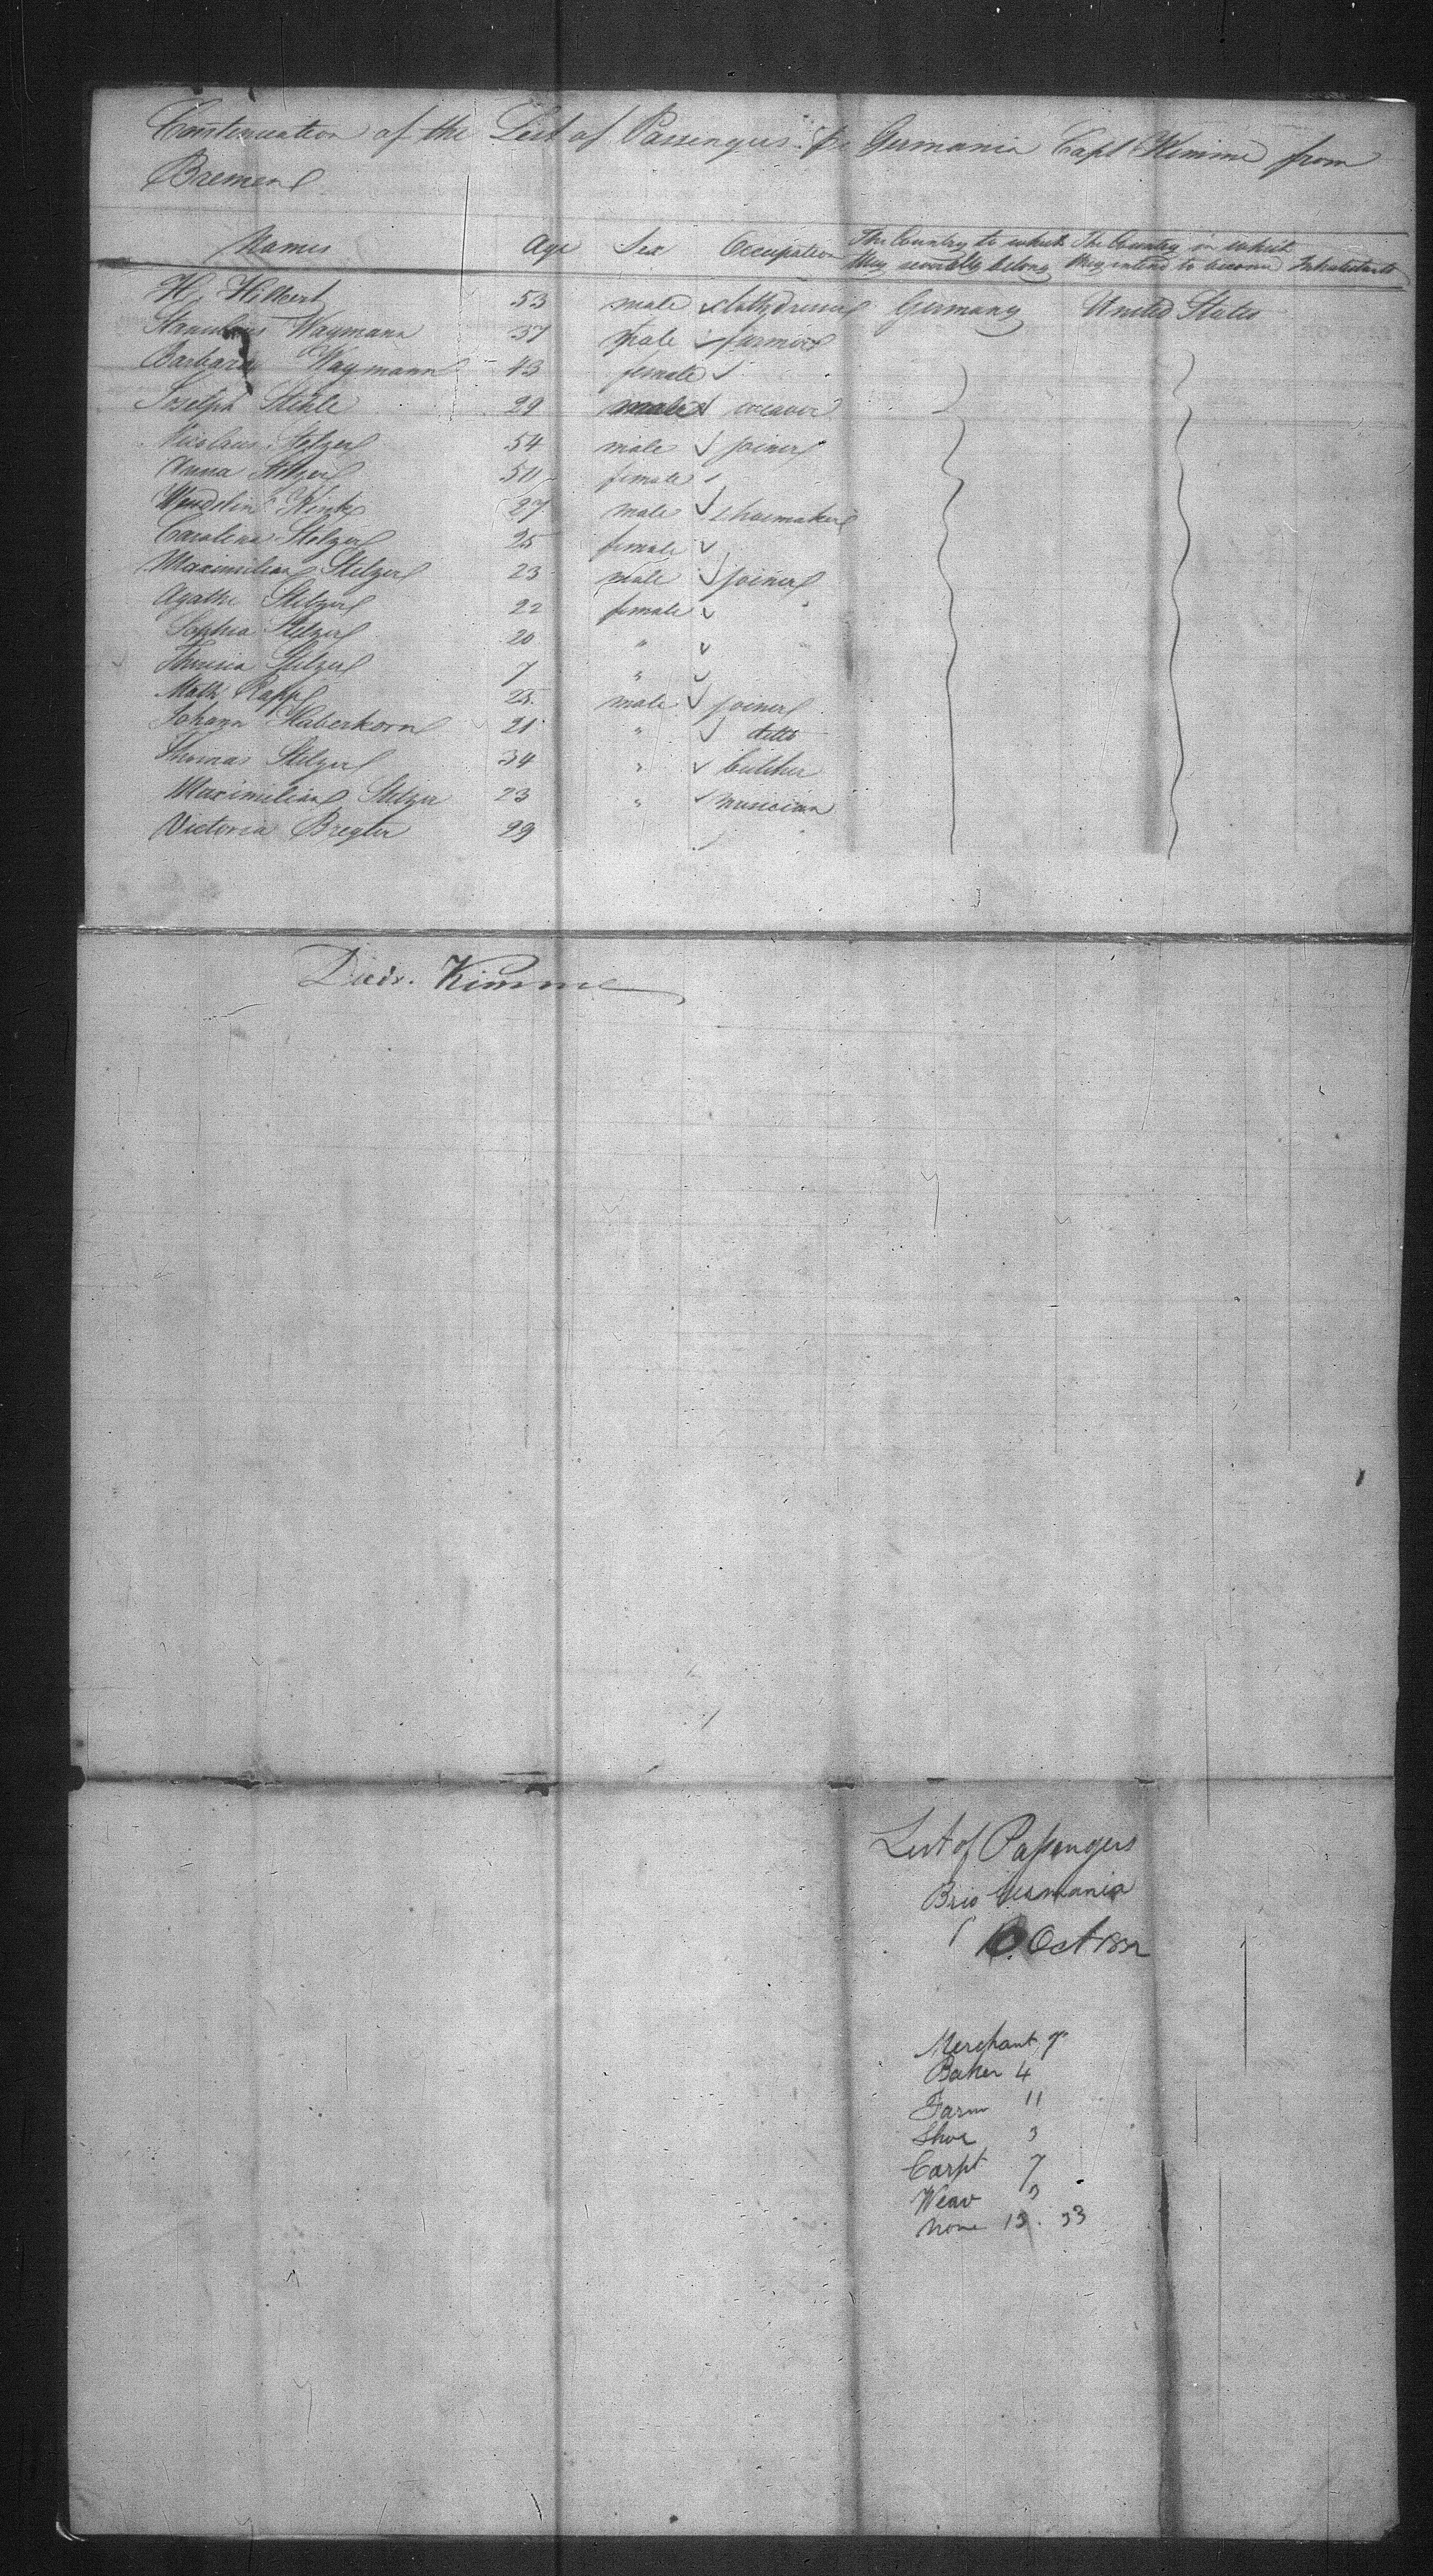 Continuation of the List of Passengers pr Germania Capt Kimme from
Bremen
Names Age Sex Occupation The Country to which they severally belong The Country in which they intend to become Inhabitants
H. Hilbert 53 male Germany United States
Stanislaus Waymann 37 male farmer
Barbara Waymann 43 female
Joseph Stehle 29 male weaver
Nicolaus Stelzer 54 male joiner
Anna Stelzer 50 female
Wendelin 27 male shoemaker
Carolina Stelzer 25 female
Maximilian Stelzer 23 male joiner
Agathe Stelzer 22 female
Sophia Stelzer 20 "
Theresia Stelzer 7 "
Math. Rapp 25 male joiner
Johann Haberkorn 21 " ditto
Thomas Stelzer 34 " butcher
Maximilian Stelzer 23 " musician
Victoria Bregler 29
Diedr. Kimme
List of Passengers
Brig Germania
10. Oct 1832
Merchant
Baker 4
Farm 11
Shoe 3
Carpt 7
Weav 3
None 13. 33